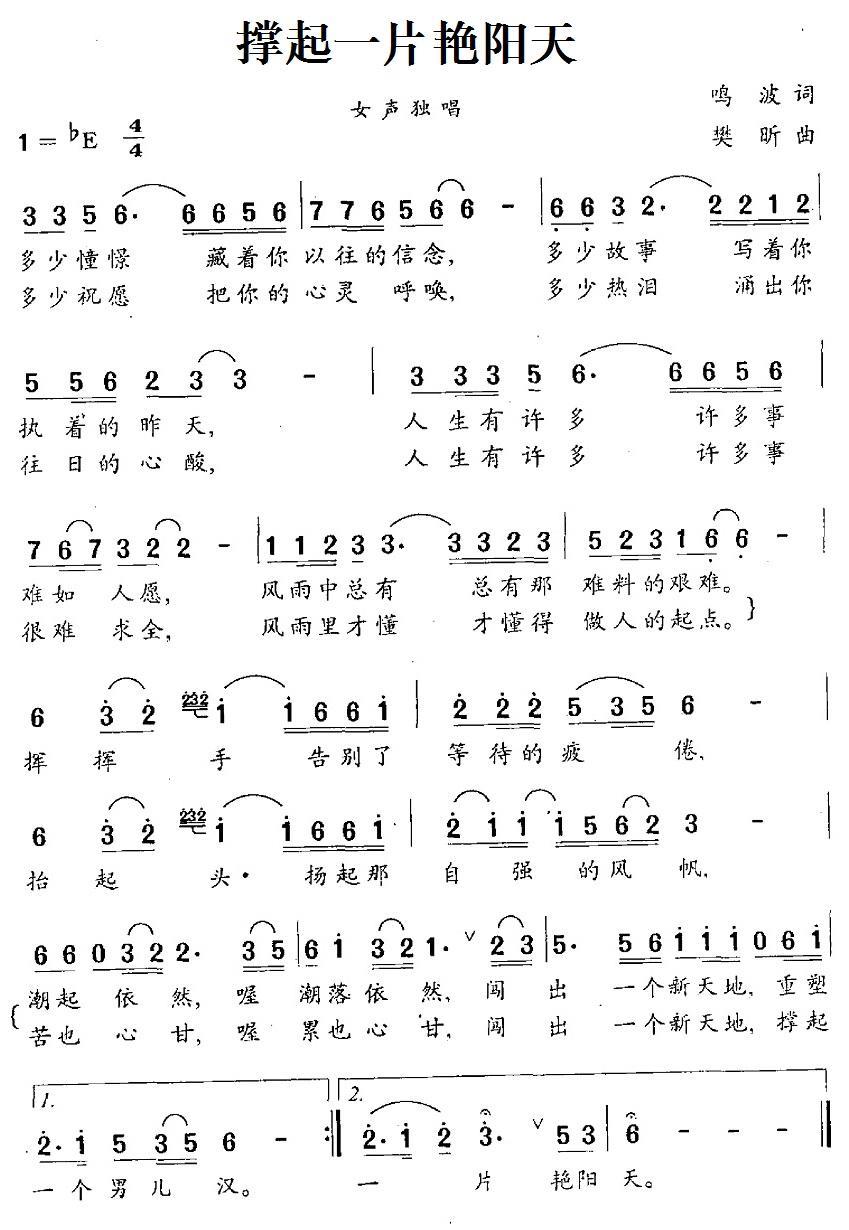 撑起一片艳阳天
女声独唱
鸣波词
1=♭E 4/4
樊昕曲
3 3 5 6· 6 6 5 6 | 7 7 6 5 6 6 - | 6 6 3 2· 2 2 1 2 |
多少憧憬 藏着你 以往的信念, 多少故事 写着你
多少祝愿 把你的 心灵 呼唤, 多少热泪 涌出你
5 5 6 2 3 3 - | 3 3 3 5 6· 6 6 5 6 |
执着的昨天, 人生有许多 许多事
往日的心酸, 人生有许多 许多事
7 6 7 3 2 2 - | 1 1 2 3 3· 3 3 2 3 | 5 2 3 1 6 6 - |
难如 人愿, 风雨中总有 总有那 难料的艰难。
很难 求全, 风雨里才懂 才懂得 做人的起点。}
6 3 2 232 1 1 6 6 1 | 2 2 2 5 3 5 6 - |
挥挥手 告别了 等待的疲倦,
6 3 2 232 1 1 6 6 1 | 2 1 1 1 5 6 2 3 - |
抬起头· 扬起那 自强的风帆,
6 6 0 3 2 2· 3 5 | 6 1 3 2 1· ∨ 2 3 | 5· 5 6 1 1 1 0 6 1 |
潮起依然, 喔 潮落依然, 闯出 一个新天地, 重塑
{苦也心甘, 喔 累也心甘, 闯出 一个新天地, 撑起
1. 2.
2· 1 5 3 5 6 - :| 2· 1 2 3· ∨ 5 3 | 6 - - - ‖
一个男儿汉。 一片艳阳天。